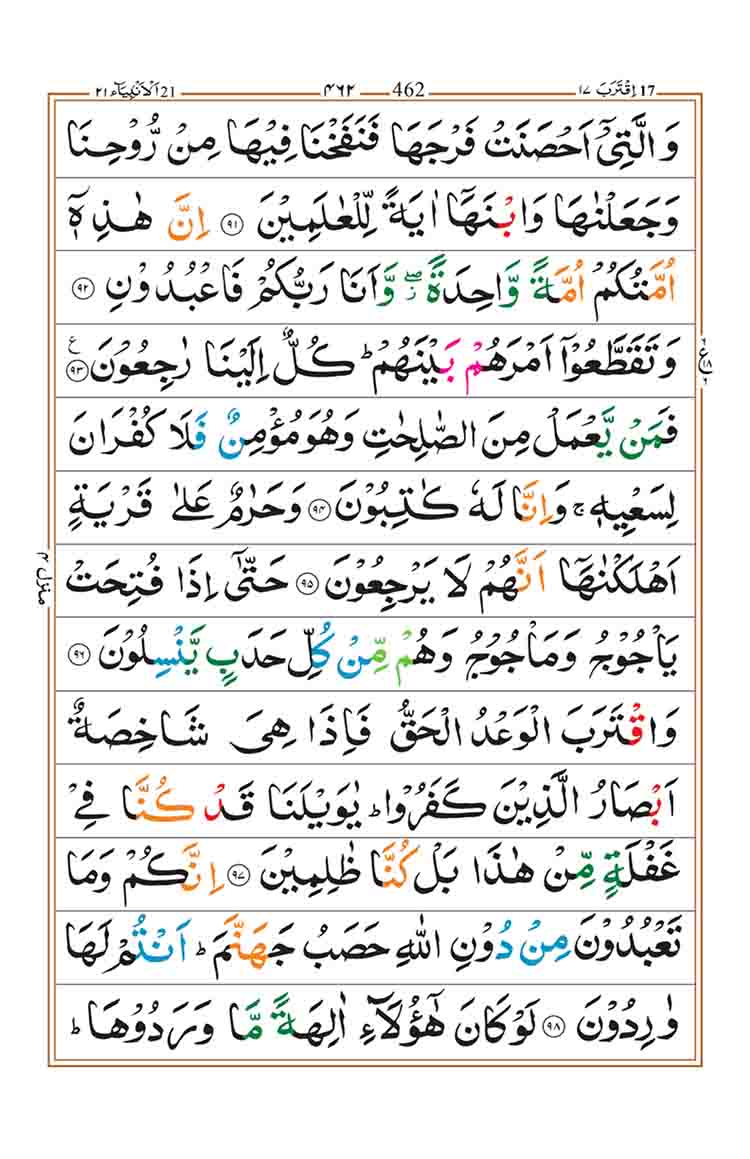 اِقْتَرَبَ ١٧ 17 462 ۴۶۲ اَلْاَنْۢبِيَآء ٢١ 21
وَالَّتِيْۤ اَحْصَنَتْ فَرْجَهَا فَنَفَخْنَا فِيْهَا مِنْ رُّوْحِنَا
وَجَعَلْنٰهَا وَابْنَهَاۤ اٰيَةً لِّلْعٰلَمِيْنَ ۝۹۱ اِنَّ هٰذِهٖۤ
اُمَّتُكُمْ اُمَّةً وَّاحِدَةً ۖ ز وَّاَنَا رَبُّكُمْ فَاعْبُدُوْنِ ۝۹۲
وَتَقَطَّعُوْۤا اَمْرَهُمْ بَيْنَهُمْ ؕ كُلٌّ اِلَيْنَا رٰجِعُوْنَ ۝۹۳ ع
ع ١٨
فَمَنْ يَّعْمَلْ مِنَ الصّٰلِحٰتِ وَهُوَ مُؤْمِنٌ فَلَا كُفْرَانَ
لِسَعْيِهٖ ۚ وَاِنَّا لَهٗ كٰتِبُوْنَ ۝۹۴ وَحَرٰمٌ عَلٰى قَرْيَةٍ
اَهْلَكْنٰهَاۤ اَنَّهُمْ لَا يَرْجِعُوْنَ ۝۹۵ حَتّٰۤى اِذَا فُتِحَتْ
منزل ۴
يَاْجُوْجُ وَمَاْجُوْجُ وَهُمْ مِّنْ كُلِّ حَدَبٍ يَّنْسِلُوْنَ ۝۹۶
وَاقْتَرَبَ الْوَعْدُ الْحَقُّ فَاِذَا هِىَ شَاخِصَةٌ
اَبْصَارُ الَّذِيْنَ كَفَرُوْا ؕ يٰوَيْلَنَا قَدْ كُنَّا فِيْ
غَفْلَةٍ مِّنْ هٰذَا بَلْ كُنَّا ظٰلِمِيْنَ ۝۹۷ اِنَّكُمْ وَمَا
تَعْبُدُوْنَ مِنْ دُوْنِ اللّٰهِ حَصَبُ جَهَنَّمَ ؕ اَنْتُمْ لَهَا
وٰرِدُوْنَ ۝۹۸ لَوْ كَانَ هٰۤؤُلَآءِ اٰلِهَةً مَّا وَرَدُوْهَا ؕ